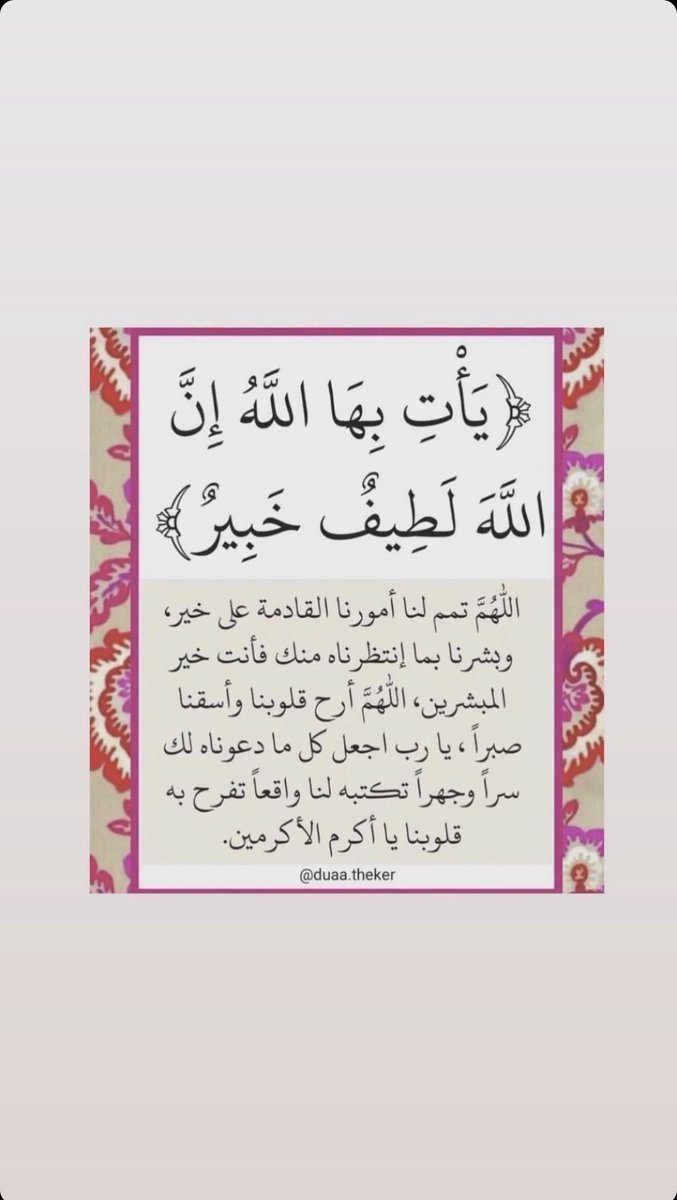 ﴿يَأْتِ بِهَا اللَّهُ إِنَّ
اللَّهَ لَطِيفٌ خَبِيرٌ﴾
اللَّهُمَّ تمم لنا أمورنا القادمة على خير،
وبشرنا بما إنتظرناه منك فأنت خير
المبشرين، اللَّهُمَّ أرح قلوبنا وأسقنا
صبراً ، يا رب اجعل كل ما دعوناه لك
سراً وجهراً تكتبه لنا واقعاً تفرح به
قلوبنا يا أكرم الأكرمين.
@duaa.theker